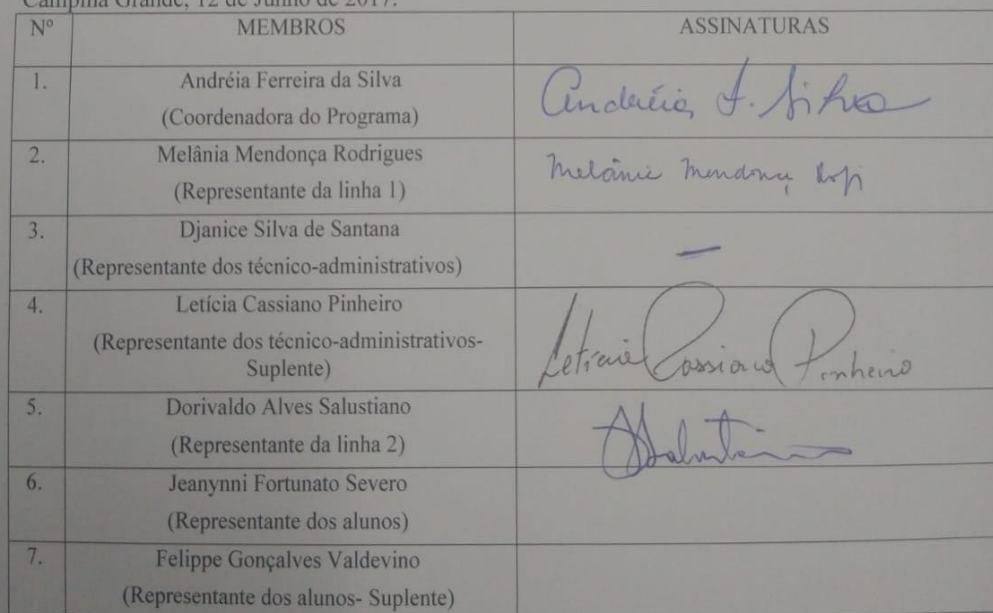 Campina Grande, 12 de Junho de 2017.
Nº MEMBROS ASSINATURAS
1. Andréia Ferreira da Silva
(Coordenadora do Programa)
Andréia F. Silva
2. Melânia Mendonça Rodrigues
(Representante da linha 1)
Melânia Mendonça
3. Djanice Silva de Santana
(Representante dos técnico-administrativos)
—
4. Letícia Cassiano Pinheiro
(Representante dos técnico-administrativos-
Suplente)
Letícia Cassiano Pinheiro
5. Dorivaldo Alves Salustiano
(Representante da linha 2)
6. Jeanynni Fortunato Severo
(Representante dos alunos)
7. Felippe Gonçalves Valdevino
(Representante dos alunos- Suplente)